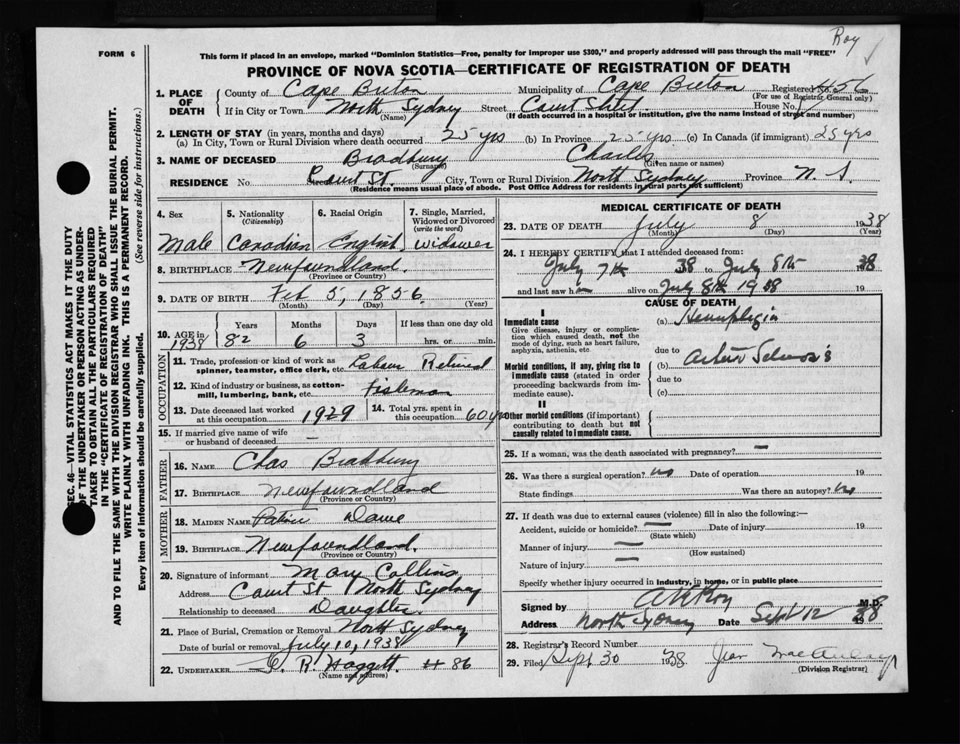 Roy
FORM 6
This form if placed in an envelope, marked "Dominion Statistics—Free, penalty for improper use $300," and properly addressed will pass through the mail "FREE"
PROVINCE OF NOVA SCOTIA—CERTIFICATE OF REGISTRATION OF DEATH
SEC. 46—VITAL STATISTICS ACT MAKES IT THE DUTY
OF THE UNDERTAKER OR PERSON ACTING AS UNDER-
TAKER TO OBTAIN ALL THE PARTICULARS REQUIRED
IN THE "CERTIFICATE OF REGISTRATION OF DEATH"
AND TO FILE THE SAME WITH THE DIVISION REGISTRAR WHO SHALL ISSUE THE BURIAL PERMIT.
WRITE PLAINLY WITH UNFADING INK. THIS IS A PERMANENT RECORD.
Every item of information should be carefully supplied. (See reverse side for instructions.)
1. PLACE OF DEATH County of Cape Breton Municipality of Cape Breton Registered No. 456
(For use of Registrar General only)
If in City or Town North Sydney Street Court Street House No.
(Name) (If death occurred in a hospital or institution, give the name instead of street and number)
2. LENGTH OF STAY (in years, months and days)
(a) In City, Town or Rural Division where death occurred 25 yrs (b) In Province 25 yrs (c) In Canada (if immigrant) 25 yrs
3. NAME OF DECEASED Bradbury Charles
(Surname) (Given name or names)
RESIDENCE No. Street Court St. City, Town or Rural Division North Sydney Province N. S.
(Residence means usual place of abode. Post Office Address for residents in rural parts not sufficient)
4. Sex 5. Nationality (Citizenship) 6. Racial Origin 7. Single, Married, Widowed or Divorced (write the word)
Male Canadian English widower
8. BIRTHPLACE Newfoundland.
(Province or Country)
9. DATE OF BIRTH Feb 5, 1856.
(Month) (Day) (Year)
10. AGE in 1938 Years Months Days If less than one day old
82 6 3 hrs. or min.
OCCUPATION
11. Trade, profession or kind of work as spinner, teamster, office clerk, etc. Labour Retired
12. Kind of industry or business, as cotton-mill, lumbering, bank, etc. Fisherman
13. Date deceased last worked at this occupation 1929 14. Total yrs. spent in this occupation 60 yrs
15. If married give name of wife or husband of deceased —
FATHER
16. NAME Chas Bradbury
17. BIRTHPLACE Newfoundland
(Province or Country)
MOTHER
18. MAIDEN NAME Dawe
19. BIRTHPLACE Newfoundland.
(Province or Country)
20. Signature of informant Mary Collins
Address Court St North Sydney
Relationship to deceased Daughter.
21. Place of Burial, Cremation or Removal North Sydney
Date of burial or removal July 10, 1938
22. UNDERTAKER R. Haggett # 86
(Name and address)
MEDICAL CERTIFICATE OF DEATH
23. DATE OF DEATH July 8 1938
(Month) (Day) (Year)
24. I HEREBY CERTIFY that I attended deceased from:
July 7th 38 to July 8th 1938
and last saw h alive on July 8th 1938 19
CAUSE OF DEATH
I
Immediate cause (a) Hemiplegia
Give disease, injury or complication which caused death, not the mode of dying, such as heart failure, asphyxia, asthenia, etc.
due to
Morbid conditions, if any, giving rise to immediate cause (stated in order proceeding backwards from immediate cause). (b)
due to
(c)
II
Other morbid conditions (if important) contributing to death but not causally related to immediate cause.
25. If a woman, was the death associated with pregnancy? —
26. Was there a surgical operation? no Date of operation 19
State findings Was there an autopsy? no
27. If death was due to external causes (violence) fill in also the following:—
Accident, suicide or homicide? — Date of injury 19
(State which)
Manner of injury —
(How sustained)
Nature of injury —
Specify whether injury occurred in Industry, in home, or in public place
Signed by Roy M.D.
Address North Sydney Date Sept 12 1938
28. Registrar's Record Number
29. Filed Sept 30 1938 Jean MacAulay
(Division Registrar)